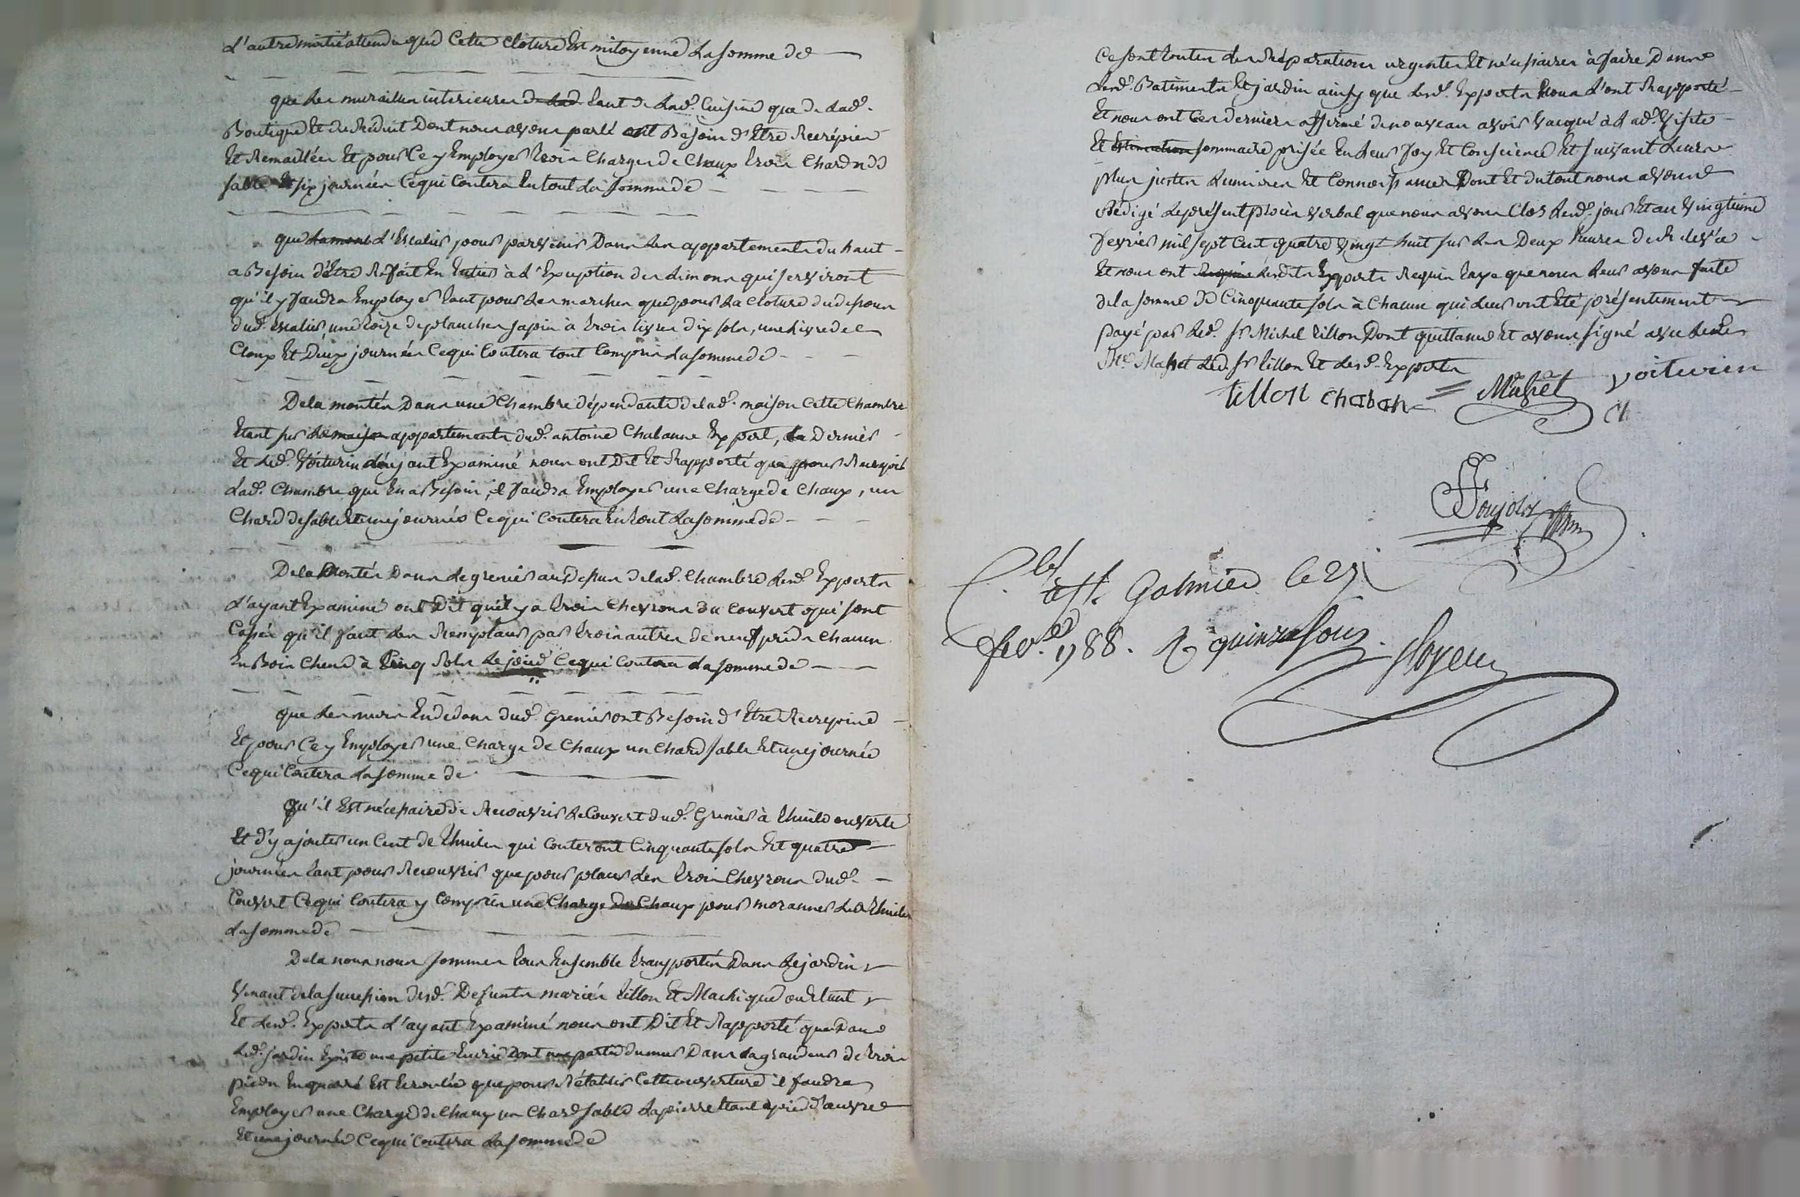 L'autre moitié attendu que Cette Cloture Est mitoyenne La somme de
que Les murailles interieures de Lad. tant de Lad.e Cuisine que de Lad.e
Boutique Et du Reduit Dont nous avons parlé ont Besoin d'Etre Recrépies
Et Remaillées Et pour Ce y Employer trois Charges de Chaux trois Chards de
sable Et six journées Ce qui Coutera En tout La somme de
que L'Escalier pour parvenir Dans Les appartements du haut
a Besoin d'Etre Refait En Entier à L'Exception des Limons qui serviront
qu'il y faudra Employer tant pour Les marches que pour La Cloture du dessous
dud. Escalier une toize de planches sapin à trois Livres dix sols, une Livre de
Cloux Et Deux journées Ce qui Coutera tout Compris La somme de
De La montés Dans une Chambre dépendante de Lad.e maison Cette Chambre
Etant sur Les appartements dud. antoine Chabanne Expert, Ce Dernier
Et Led. Voiturin L'ayant Examiné nous ont Dit Et Rapporté que pour Recrépir
Lad.e Chambre que En a Besoin, il faudra Employer une Charge de Chaux, un
Chard de sable Et une journée Ce qui Coutera En tout La somme de
De La Montés Dans Le grenier au Dessus de Lad.e Chambre Lesd. Experts
L'ayant Examiné ont Dit qu'il y a trois Chevrons du Couvert qui sont
Cassés qu'il faut Les Remplacer par trois autres de neuf pieds Chacun
En Bois Chene à Cinq sols Le pied Ce qui Coutera La somme de
que Les murs En dedans dud. Grenier ont Besoin d'Etre Recrepis
Et pour Ce y Employer une Charge de Chaux un Chard sable Et une journée
Ce qui Coutera La somme de
Qu'il Est nécessaire de Recouvrir Le Couvert dud. Grenier à thuile ouverte
Et d'y ajouter un Cent de thuiles qui Couteront Cinquante sols Et quatre
journées tant pour Recouvrir que pour placer Les trois Chevrons dud.
Couvert Ce qui Coutera y Compris une Charge de Chaux pour Les thuiles
La somme de
De La nous nous sommes tous Ensemble transportés Dans Le jardin
Venant de La succession desd. Defunts mariés tillon Et
Et Lesd. Experts L'ayant Examiné nous ont Dit Et Rapporté que Dans
Led. jardin Existe une petite Ecurie Dont une partie du mur Dans La grandeur de trois
pieds En quarré Est Ecroulée que pour Rétablir Cette ouverture il faudra
Employer une Charge de Chaux un Chard sable La pierre Etant à pied d'œuvre
Et une journée Ce qui Coutera La somme de
Ce sont toutes Les Réparations urgentes Et nécessaires à faire Dans
Lesd. Batiments Et jardin ainsy que Lesd. Experts Nous L'ont Rapporté
Et nous ont Ces derniers affirmé de nouveau avoir Vacqué à Lad.e Visite
Et Estimation sommaire prisée En Leur foy Et Conscience Et suivant Leurs
plus justes Lumieres Et Connoissances Dont Et du tout nous avons
Rédigé Le présent procès Verbal que nous avons Clos Lesd. jour Et an Vingtieme
fevrier mil sept Cent quatre Vingt huit sur Les Deux heures de Relevée
Et nous ont Lesdits Experts Requis taxe que nous Leur avons faite
de La somme de Cinquante sols à Chacun qui Leur ont Eté présentement
payé par Led. sr Michel tillon Dont quittance Et avons signé avec
Me. Led. sr tillon Et Lesd. Experts
tillon Chaban voiturin
Cté à St. Galmier le 21
fev.er 1788. R quinze sous.